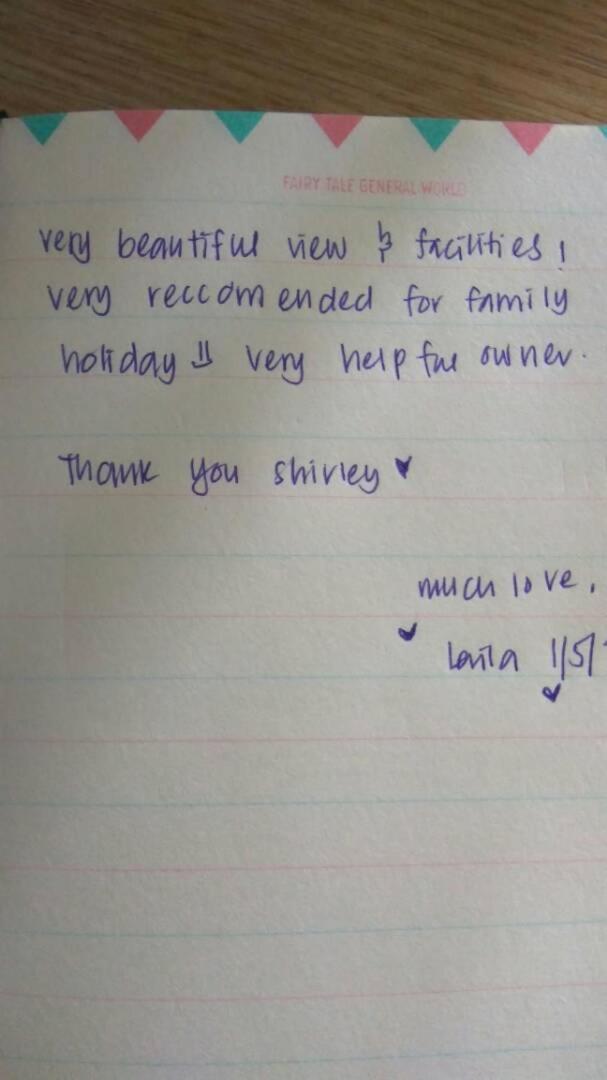 FAIRY TALE GENERAL WORLD
very beautiful view & facilities!
very reccomended for family
holiday!! very helpful owner.
Thank you Shirley ♥
much love,
Laila 1/5/